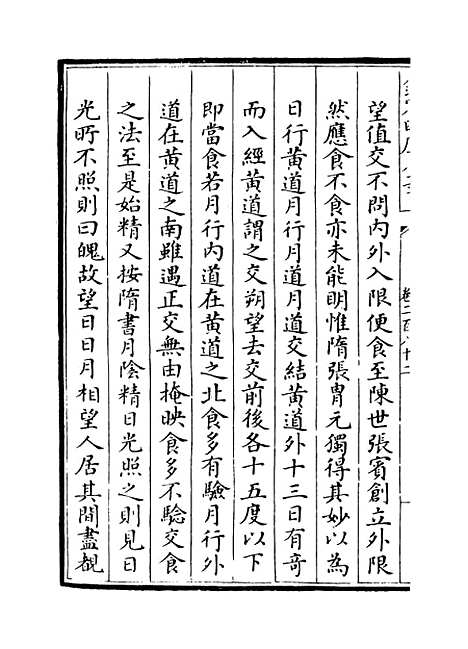 卷二百八十二
望值交不問内外入限便食至陳世張賓創立外限
然應食不食亦未能明惟隋張胄元獨得其妙以為
日行黄道月行月道月道交結黄道外十三日有竒
而入經黄道謂之交朔望去交前後各十五度以下
即當食若月行内道在黄道之北食多有驗月行外
道在黄道之南雖遇正交無由掩映食多不驗交食
之法至是始精又按隋書月隂精日光照之則見日
光所不照則曰魄故望日日月相望人居其間盡覩